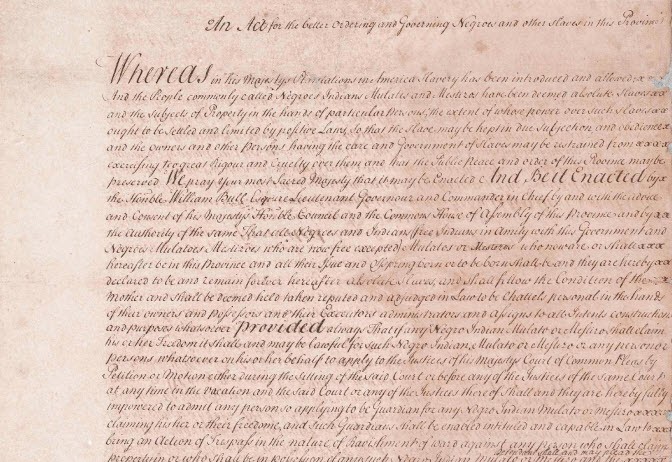 An Act for the better Ordering and Governing Negroes and other slaves in this Province
Whereas in his Majestys Plantations in America Slavery has been introduced and allowed x x
And the People commonly called Negroes Indians Mulatos and Mestizos have been deemed absolute Slaves x x
and the Subjects of Property in the hands of particular Persons, the extent of whose power over such slaves xx
ought to be Settled and limited by positive Laws, So that the Slave may be kept in due Subjection and obedience
and the owners and other Persons having the care and Government of Slaves may be restrained from x x x x
exercising too great Rigour and Cruelty over them and that the Publick Peace and order of this Province may be
preserved We pray Your most Sacred Majesty that it may be Enacted And Be it Enacted by x
the Honble. William Bull Esquire Lieutenant Governour and Commander in Chief by and with the advice
and Consent of his Majestys Honble Council and the Commons House of Assembly of this Province and by x
the Authority of the same That all Negroes and Indians (free Indians in amity with this Government and
Negroes Mulatos Mestizoes who are now free excepted) Mulatos or Mestizos who now are or shall x x x
hereafter be in this Province and all their Issue and Offspring born or to be born shall be and they are hereby
declared to be and remain forever hereafter absolute Slaves, and shall follow the Condition of the
Mother and shall be deemed held taken reputed and adjudged in Law to be Chattels personal in the hands
of their owners and possessors and their Executors administrators and assigns to all Intents constructions
and purposes whatsoever Provided always That if any Negro Indian Mulato or Mestizo shall claim
his or her Freedom it shall and may be lawful for such Negro Indian, Mulato or Mestizo or any person or
persons whatsoever on his or her behalf to apply to the Justices of his Majestys Court of Common Pleas by
Petition or Motion either during the Sitting of the said Court or before any of the Justices of the same Court
at any time in the Vacation and the said Court or any of the Justices thereof Shall and they are hereby fully
impowered to admit any person so applying to be Guardian for any Negro Indian Mulato or Mestizo x x x x
claiming his or their Freedome, and such Guardians shall be enabled intituled and capable in Law to x x
bring an Action of Trespass in the nature of Ravishment of ward against any person who shall claim
property in or who shall be in possession of any such Negro Indian Mulato or Mestizo
Defendant shall and may plead the